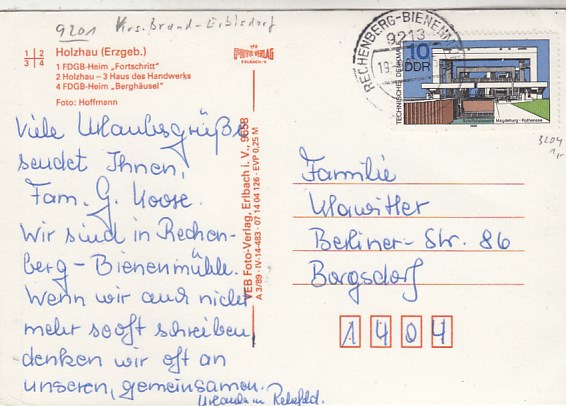 9201 Krs. Brand-Erbisdorf
1|2 Holzhau (Erzgeb.)
3|4
1 FDGB-Heim „Fortschritt"
2 Holzhau – 3 Haus des Handwerks
4 FDGB-Heim „Berghäusel"
Foto: Hoffmann
VERLAG
VEB Foto-Verlag, Erlbach i. V., 9658
A 3/89 · IV-14-483 · 07 14 04 126 · EVP 0,25 M
RECHENBERG-BIENENM
9213
19.
10
DDR
TECHNISCHE DENKMALE
Magdeburg - Rothensee
3204
1,-
Viele Urlaubsgrüße
sendet Ihnen,
Fam. G. Koose.
Wir sind in Rechen-
berg-Bienenmühle.
Wenn wir auch nicht
mehr sooft schreiben,
denken wir oft an
unseren, gemeinsamen
Urlaub in Rehefeld.
Familie
Klawitter
Berliner-Str. 86
Borgsdorf
1404